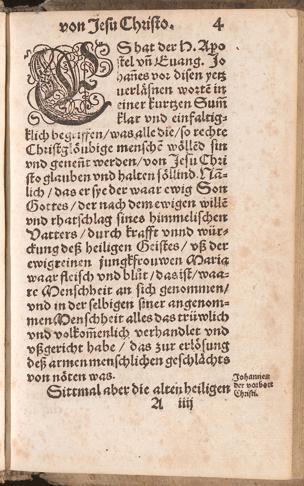 von Jesu Christo. 4
ES hat der H. Apo
stel vñ Euang. Jo
hañes vor disen yetz
uerläsnen wortẽ in
einer kurtzen Sum̃
klar vnd einfaltig-
klich begriffen / was alle die / so rechte
Christglöubige menschẽ wöllẽd sin
vnd geneñt werden / von Jesu Chri
sto glauben vnd halten söllind. Nä-
lich / das er sye der waar ewig Son
Gottes / der nach dem ewigen willẽ
vnd rhatschlag sines himmelischen
Vatters / durch krafft vnnd wür-
ckung deß heiligen Geistes / vß der
ewigreinen jungkfrouwen Maria
waar fleisch vnd blůt / das ist / waa-
re Menschheit an sich genommen /
vnd in der selbigen siner angenom-
men Menschheit alles das trüwlich
vnd volkom̃enlich verhandlet vnd
vßgericht habe / das zur erlösung
deß armen menschlichen geschlächts
von nöten was.
Sittmal aber die alten heiligen
Johannes
der vorbott
Christi.
A iiij